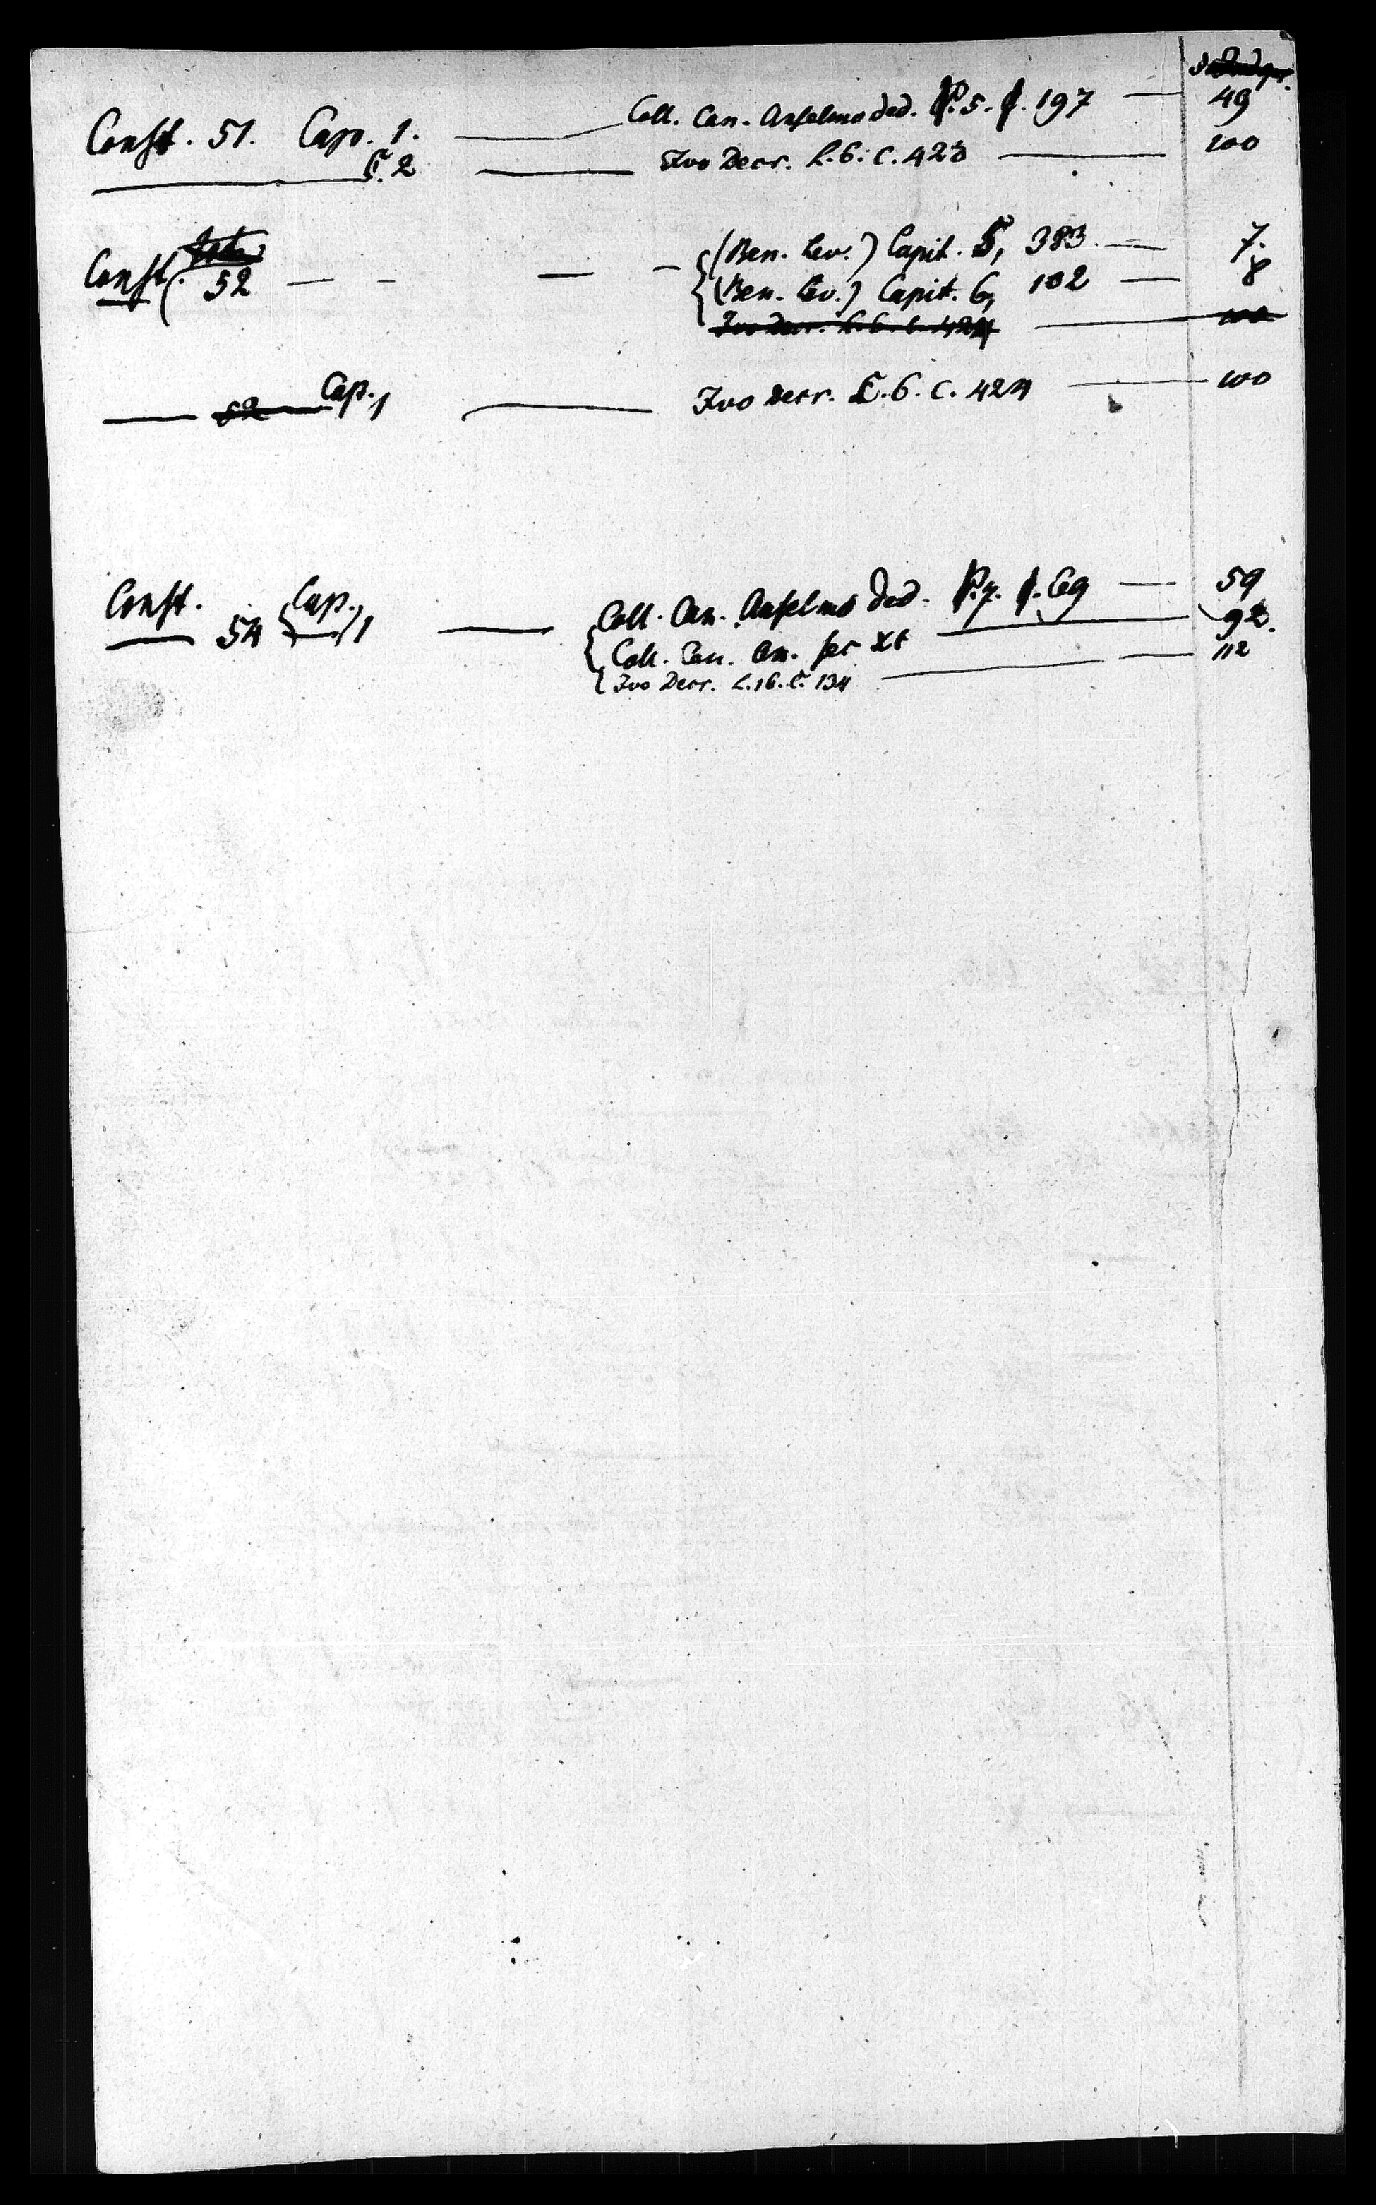 Const. 51. Cap. 1. — Coll. Can. Anselmo ded. P. 5. f. 197 — 49
C. 2 — Ivo Decr. L. 6. c. 423 — 100
Const. 52 — — — — { (Ben. Lev.) Capit. 5, 383. — 7.
(Ben. Lev.) Capit. 6, 102 — 8
Ivo Decr. L. 6. c. 424 — 100
— 52 — Cap. 1 — Ivo Decr. L. 6. c. 424 — 100
Const. 54 Cap. 1 — { Coll. Can. Anselmo ded. P. 7. f. 69 — 59
Coll. Can. — 92.
Ivo Decr. L. 16. C. 134 — 112